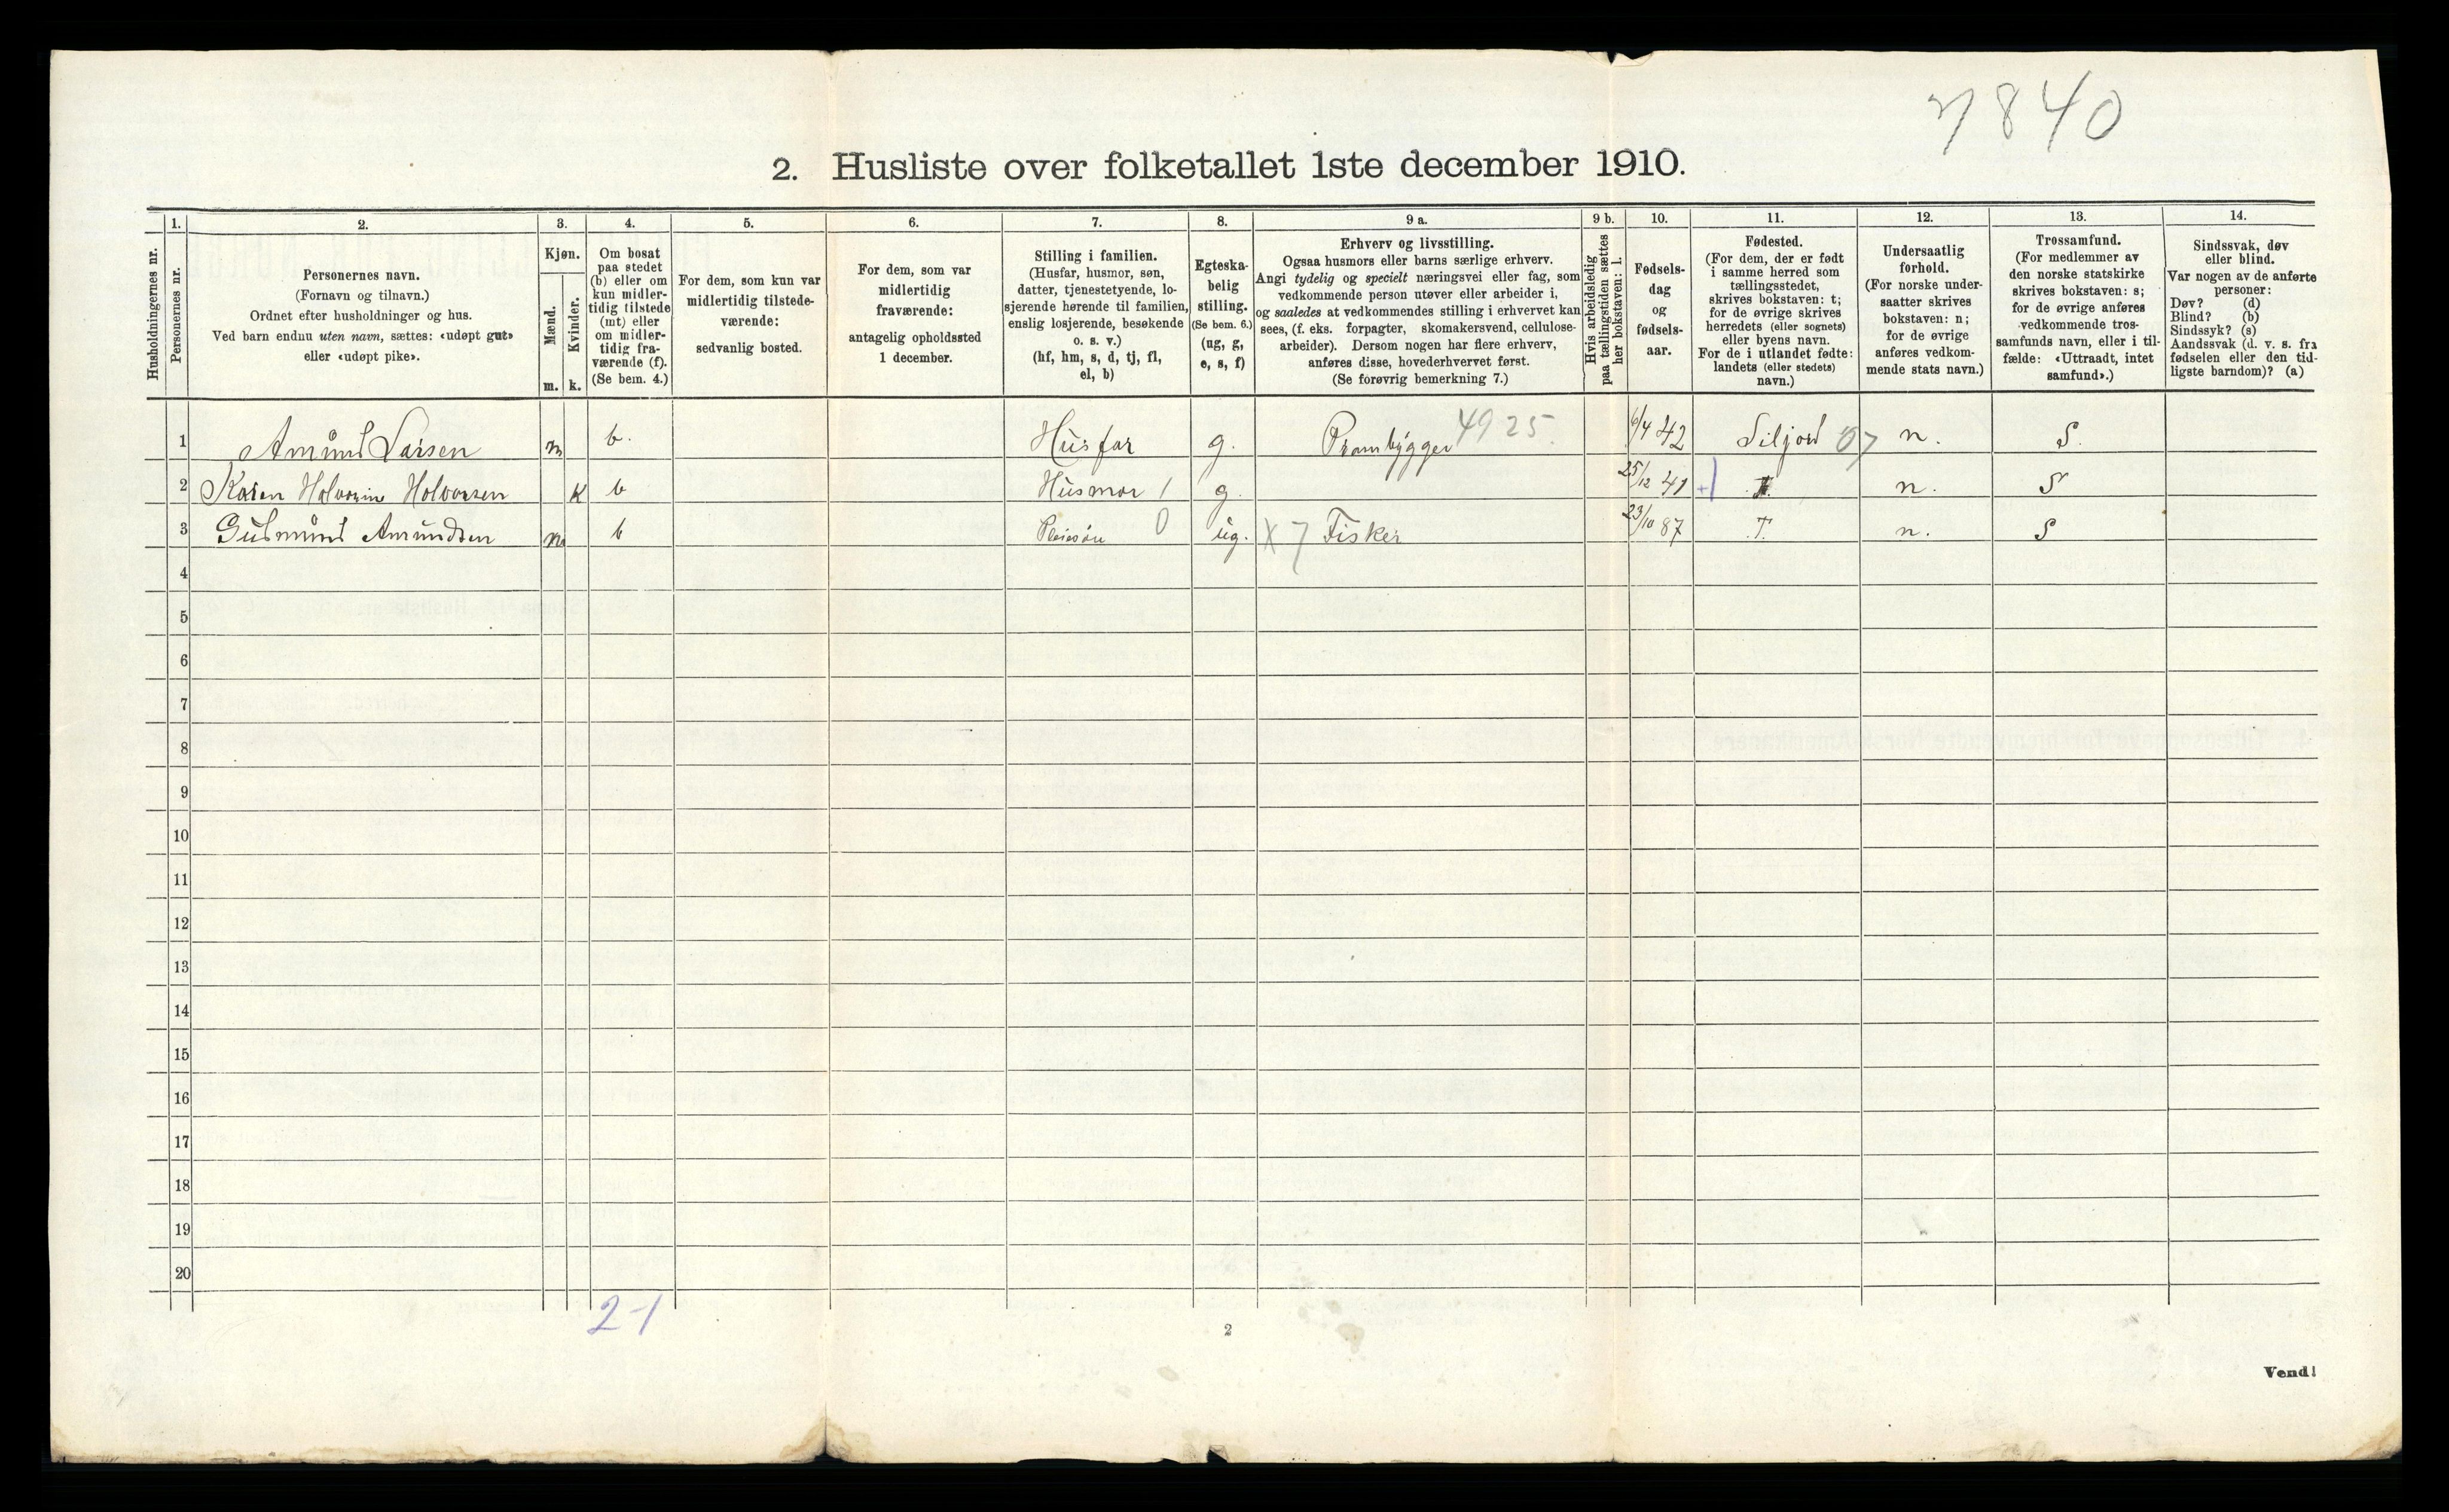 7840
2. Husliste over folketallet 1ste december 1910.
Husholdningernes nr.
1.
Personernes nr.
2.
Personernes navn.
(Fornavn og tilnavn.)
Ordnet efter husholdninger og hus.
Ved barn endnu uten navn, sættes: «udøpt gut»
eller «udøpt pike».
3.
Kjøn.
Mænd.
Kvinder.
m. k.
4.
Om bosat
paa stedet
(b) eller om
kun midler-
tidig tilstede
(mt) eller
om midler-
tidig fra-
værende (f).
(Se bem. 4.)
5.
For dem, som kun var
midlertidig tilstede-
værende:
sedvanlig bosted.
6.
For dem, som var
midlertidig
fraværende:
antagelig opholdssted
1 december.
7.
Stilling i familien.
(Husfar, husmor, søn,
datter, tjenestetyende, lo-
sjerende hørende til familien,
enslig losjerende, besøkende
o. s. v.)
(hf, hm, s, d, tj, fl,
el, b)
8.
Egteska-
belig
stilling.
(Se bem. 6.)
(ug, g,
e, s, f)
9 a.
Erhverv og livsstilling.
Ogsaa husmors eller barns særlige erhverv.
Angi tydelig og specielt næringsvei eller fag, som
vedkommende person utøver eller arbeider i,
og saaledes at vedkommendes stilling i erhvervet kan
sees, (f. eks. forpagter, skomakersvend, cellulose-
arbeider). Dersom nogen har flere erhverv,
anføres disse, hovederhvervet først.
(Se forøvrig bemerkning 7.)
9 b.
Hvis arbeidsledig
paa tællingstiden sættes
her bokstaven: l.
10.
Fødsels-
dag
og
fødsels-
aar.
11.
Fødested.
(For dem, der er født
i samme herred som
tællingsstedet,
skrives bokstaven: t;
for de øvrige skrives
herredets (eller sognets)
eller byens navn.
For de i utlandet fødte:
landets (eller stedets)
navn.)
12.
Undersaatlig
forhold.
(For norske under-
saatter skrives
bokstaven: n;
for de øvrige
anføres vedkom-
mende stats navn.)
13.
Trossamfund.
(For medlemmer av
den norske statskirke
skrives bokstaven: s;
for de øvrige anføres
vedkommende tros-
samfunds navn, eller i til-
fælde: «Uttraadt, intet
samfund».)
14.
Sindssvak, døv
eller blind.
Var nogen av de anførte
personer:
Døv? (d)
Blind? (b)
Sindssyk? (s)
Aandssvak (d. v. s. fra
fødselen eller den tid-
ligste barndom)? (a)
1 Amund Larsen m b. Husfar g. Prambygger 4925. 6/4 42 Siljord 07 n. S.
2 Karen Holvorsen k b Husmor 1 g. 25/12 41 +1 T. n. S
3 Gudmund Amundsen m b Pleiesøn 0 ug. X 7 Fisker 23/10 87 T. n. S
4
5
6
7
8
9
10
11
12
13
14
15
16
17
18
19
20
2-1
2
Vend!